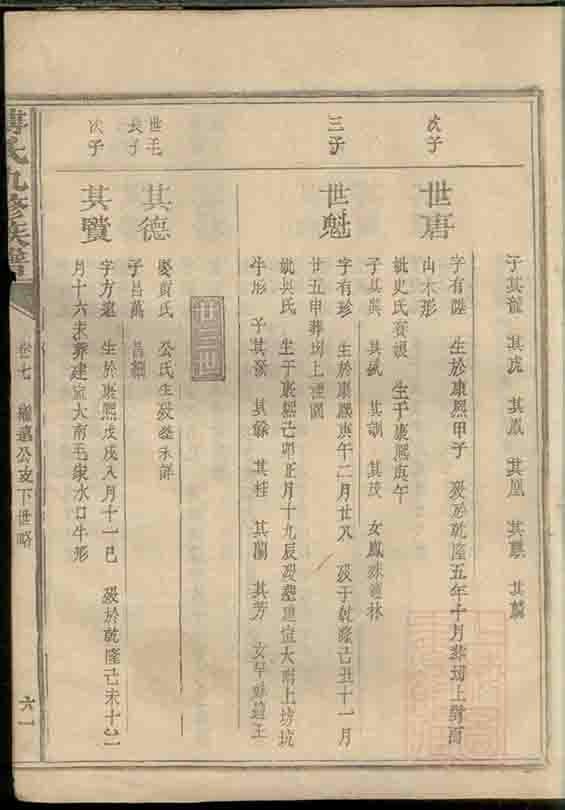 子其龍 其虎 其鳳 其凰 其麒 其麟
次子
世唐
字有陞 生於康熙甲子 歿於乾隆五年十月葬圽上對面
山木形
妣史氏 生于康熙庚午
子其興 其斌 其訓 其茂 女鳳姝適林
三子
世魁
字有珍 生於康熙庚午二月廿八 歿于乾隆己丑十一月
廿五申葬圽上裡園
妣吳氏 生于康熙己卯正月十九辰歿塟建宣大南上坊坑
牛形 子其 其 其桂 其蘭 其芳 女早姝適王
廿三世
世毛
長子
其德
娶黃氏 公氏生歿塋未詳
子昌萬 昌細
次子
其贊
字方遠 生於康熙戊戌八月十一巳 歿於乾隆己未十二
月十六未葬建宣大南毛家水口牛形
傅氏九修族譜
卷七 繼遠公支下世略
六一